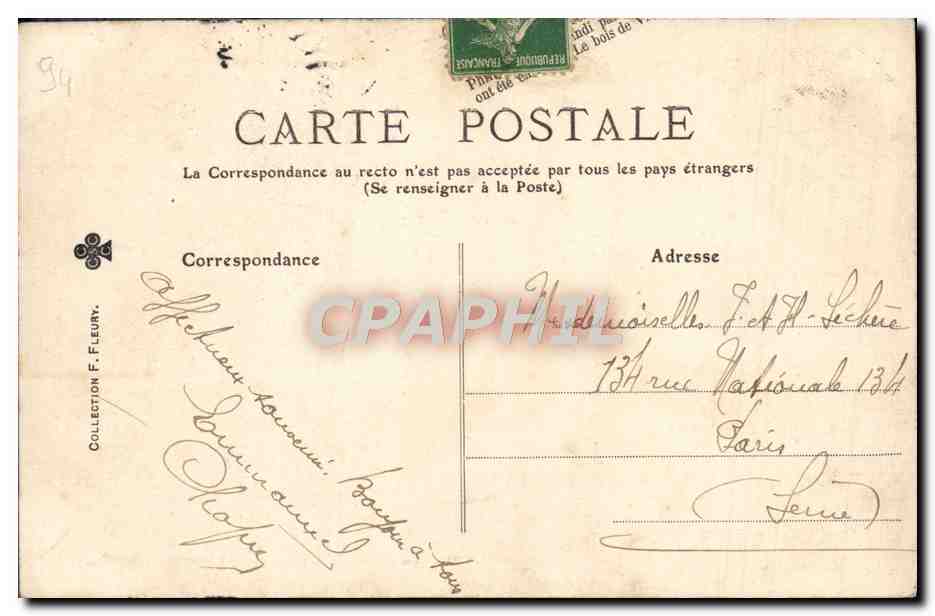 94
RÉPUBLIQUE FRANÇAISE
ont été
Le bois de
CARTE POSTALE
La Correspondance au recto n'est pas acceptée par tous les pays étrangers
(Se renseigner à la Poste)
Correspondance
Adresse
COLLECTION F. FLEURY.
Affectueux souvenir. Bonjour à tous
Emmanuel
Mademoiselles J. A H - Léchère
134 rue Nationale 134
Paris
(Seine)
CPAPHIL